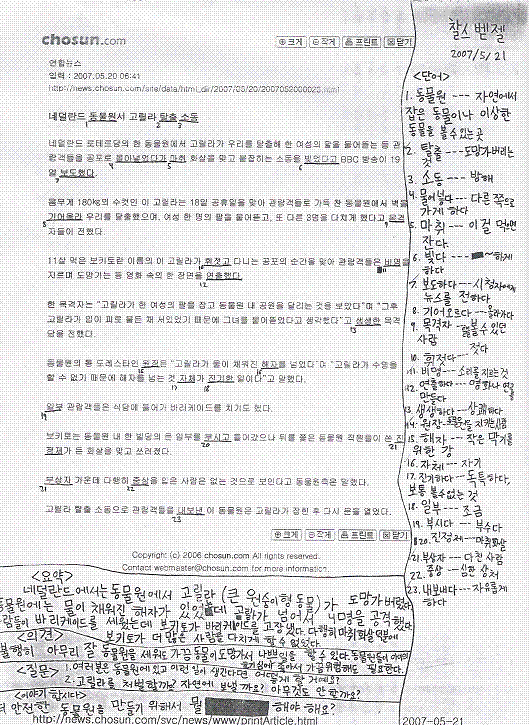 chosun.com
크게 작게 프린트 닫기
연합뉴스
입력 : 2007.05.20 06:41
http://news.chosun.com/site/data/html_dir/2007/05/20/2007052000023.html
네덜란드 동물원서 고릴라 탈출 소동
네덜란드 로테르담의 한 동물원에서 고릴라가 우리를 탈출해 한 여성의 팔을 물어뜯는 등 관
람객들을 공포로 몰아넣었다가 마취 화살을 맞고 붙잡히는 소동을 빚었다고 BBC 방송이 19
일 보도했다.
몸무게 180kg의 수컷인 이 고릴라는 18일 공휴일을 맞아 관람객들로 가득 찬 동물원에서 벽을
기어올라 우리를 탈출했으며, 여성 한 명의 팔을 물어뜯고, 또 다른 3명을 다치게 했다고 목격
자들이 전했다.
11살 먹은 보키토란 이름의 이 고릴라가 휘젓고 다니는 공포의 순간을 맞아 관람객들은 비명을
지르며 도망가는 등 영화 속의 한 장면을 연출했다.
한 목격자는 "고릴라가 한 여성의 팔을 잡고 동물원 내 공원을 달리는 것을 보았다"며 "그후
고릴라가 입이 피로 물든 채 서있었기 때문에 그녀를 물어뜯었다고 생각했다"고 생생한 목격
담을 전했다.
동물원의 톤 도레스타인 원장은 "고릴라가 물이 채워진 해자를 넘었다"며 "고릴라가 수영을
할 수 없기 때문에 해자를 넘는 것 자체가 진기한 일이다"고 말했다.
일부 관람객들은 식당에 들어가 바리케이드를 치기도 했다.
보키토는 동물원 내 한 빌딩의 문 일부를 부시고 들어갔으나 뒤를 쫓은 동물원 직원들이 쏜 진
정제가 든 화살을 맞고 쓰러졌다.
부상자 가운데 다행히 중상을 입은 사람은 없는 것으로 보인다고 동물원측은 말했다.
고릴라 탈출 소동으로 관람객들을 내보낸 이 동물원은 고릴라가 잡힌 후 다시 문을 열었다.
크게 작게 프린트 닫기
Copyright (c) 2006 chosun.com All rights reserved.
Contact webmaster@chosun.com for more information.
찰스 벤젤
2007/5/21
<단어>
1. 동물원 --- 자연에서
잡은 동물이나 이상한
동물을 볼 수 있는 곳
2. 탈출 --- 도망가 버리는
것
3. 소동 --- 방해
4. 몰아넣다 --- 다른 쪽으로
가게 하다
5. 마취 --- 이걸 먹으면
잔다
6. 빚다 --- ~하게
하다
7. 보도하다 --- 시청자에게
뉴스를 전하다
8. 기어오르다 --- 올라가다
9. 목격자 --- 볼 수 있던
사람
10. 휘젓다 --- 젓다
11. 비명 --- 소리를 지르는 것
12. 연출하다 --- 영화나 연극
만들다
13. 생생하다 --- 상쾌하다
14. 원장 --- 동물원을 지키는 사람
15. 해자 --- 작은 막기를
위한 강
16. 자체 --- 자기
17. 진기하다 --- 독특하다,
보통 볼 수 없는 것
18. 일부 --- 조금
19. 부시다 --- 부수다
20. 진정제 --- 마취화살
21. 부상자 --- 다친 사람
22. 중상 --- 심한 상처
23. 내보내다 --- 자유롭게
하다
<요약>
네덜란드에서는 동물원에서 고릴라 (큰 원숭이형 동물)가 도망가 버렸다
동물원에는 물이 채워진 해자가 있었는데 고릴라가 넘어서 4명을 공격했다
사람들이 바리케이드를 세웠는데 보키토가 바리케이드를 고장냈다. 다행히 마취화살 덕분에
보키토가 더 많은 사람을 다치게 할 수 없었다
<의견>
불행히 아무리 잘 동물원을 세워도 가끔 동물이 도망가서 나쁜 일을 할 수 있다. 동물원들이
필요하다.
<질문> 1. 여러분은 동물원에 있고 이런 일이 생긴다면 어떻게 할 거예요?
2. 고릴라를 처벌할까? 자연에 보낼까요? 아무것도 안 할까요?
<이야기 합시다>
더 안전한 동물원을 만들기 위해서 뭘 해야 해요?
http://news.chosun.com/svc/news/www/printArticle.html
2007-05-21